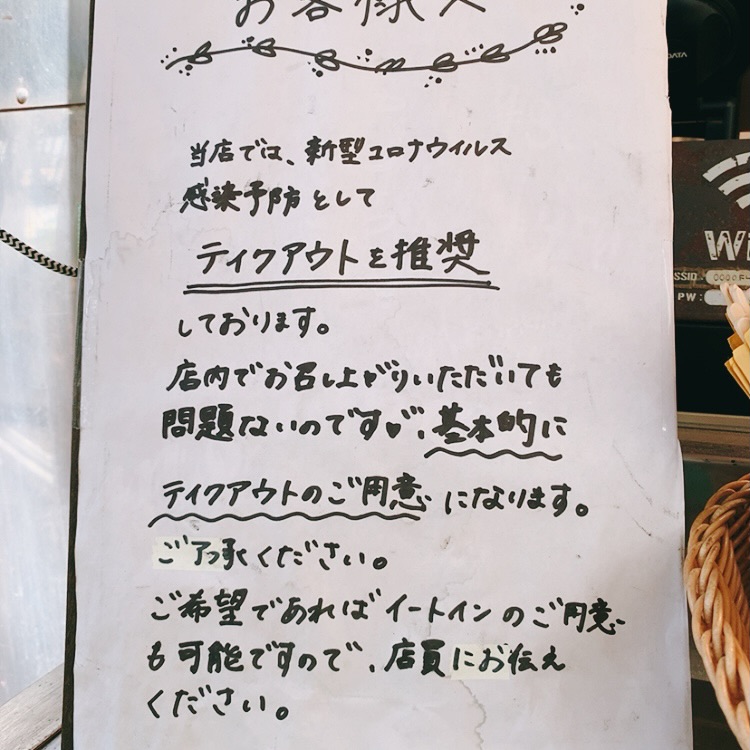 お客様へ
当店では、新型コロナウイルス
感染予防として
テイクアウトを推奨
しております。
店内でお召し上がりいただいても
問題ないのですが、基本的に
テイクアウトのご用意になります。
ご了承ください。
ご希望であればイートインのご用意
も可能ですので、店員にお伝え
ください。
DATA
SSID:
PW: